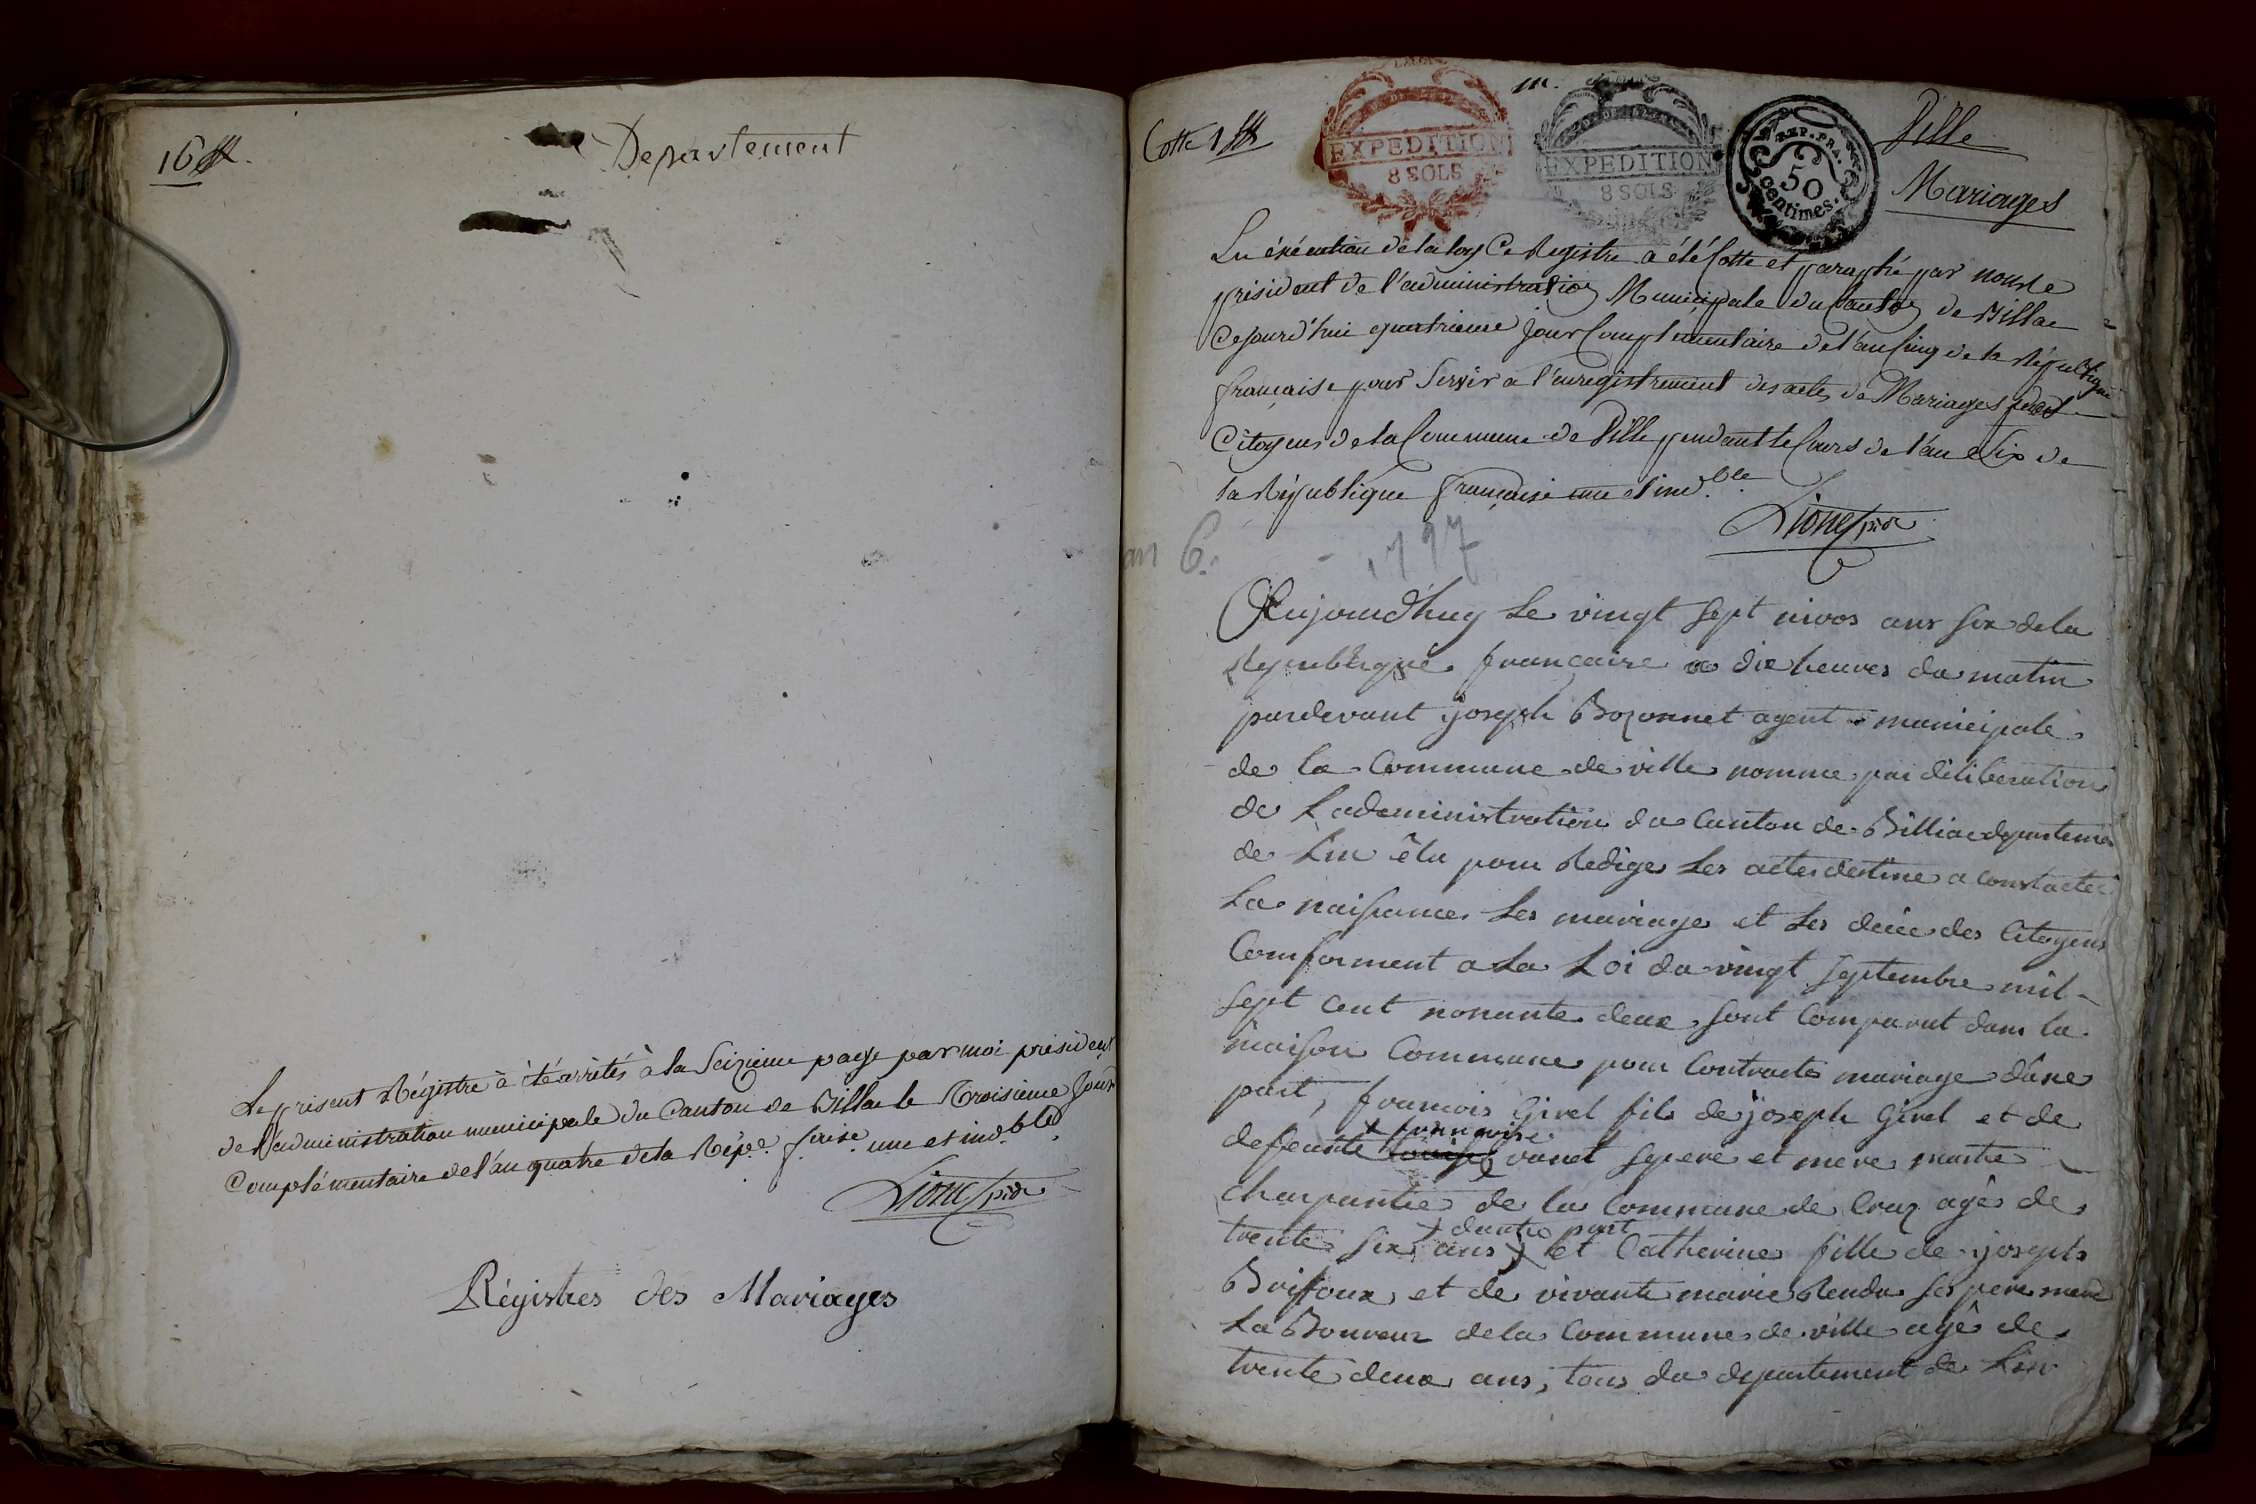 16
Departement
Le present Régistre à été arrêtés à la Seizieme page par moi président
de l'administration municipale du Canton de Billac le Troisieme Jour
Complémentaire de l'an quatre de la Rép.e f.aise une et ind.ble
Régistres des Mariages
Cotte 1
m.
EXPEDITION
8 SOLS
EXPEDITION
8 SOLS
REP. FRA.
50
centimes.
Ville
Mariages
En éxécution de la loy Ce Registre a été Cotté et paraphé par nous le
président de l'administration Municipale du Canton de Billac
Cejourd'hui quatrieme jour Complementaire de l'an Cinq de la République
française pour Servir a l'enregistrement des actes de Mariages des
Citoyens de la Commune de Ville pendant le Cours de l'an Six de
la République française une et ind.ble
an 6. - 1797
Aujourdhuy Le vingt sept nivos ans six dela
Republique francaise a dix heures du matin
pardevant joseph Bozonnet agent municipale
de la Commune de ville nomme par déliberation
de Ladeministration du Canton de Billiac departement
de Lin élu pour Rediger Les actes destine a constater
La naissance Les mariage et Les décée des Citoyens
Conforment a La Loi du vingt septembre mil
sept cent nonante deux, sont Comparut dans la
maison Commune pour Contracter mariage dune
part, francois Girel fils de joseph Girel et de
deffeunte francoise vanet se pere et mere maitre
charpantie de la Commune de Craz agé de
trente six ans dautre part et Catherine fille de joseph
Boissoux et de vivante marie Rendu ses pere mere
La Boureur dela Commune de ville agé de
trente deux ans, tous du departement de Lin